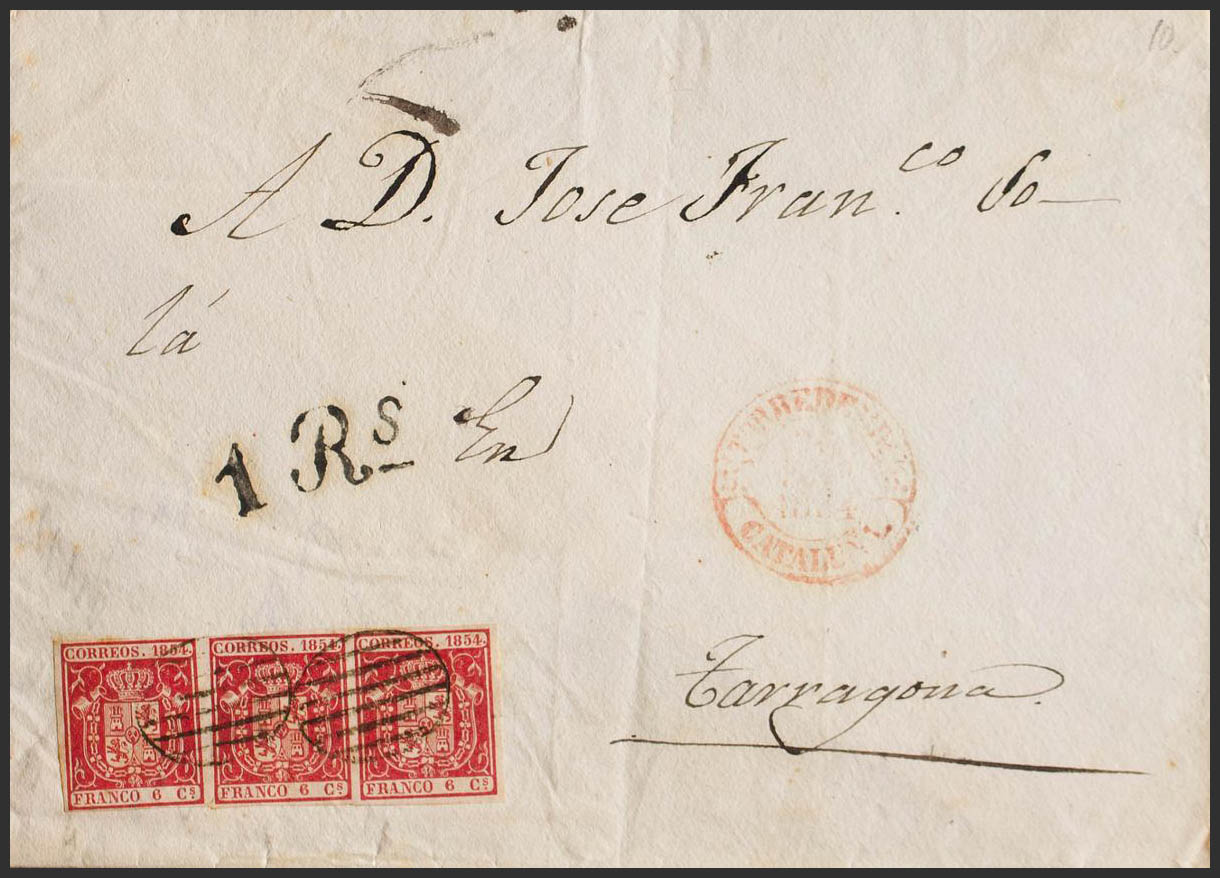 10.
A D. Jose Fran.co So-
lá
1 Rs En
CATALUÑA
Tarragona.
CORREOS. 1854. CORREOS. 1854. CORREOS. 1854.
FRANCO 6 Cs FRANCO 6 Cs FRANCO 6 Cs